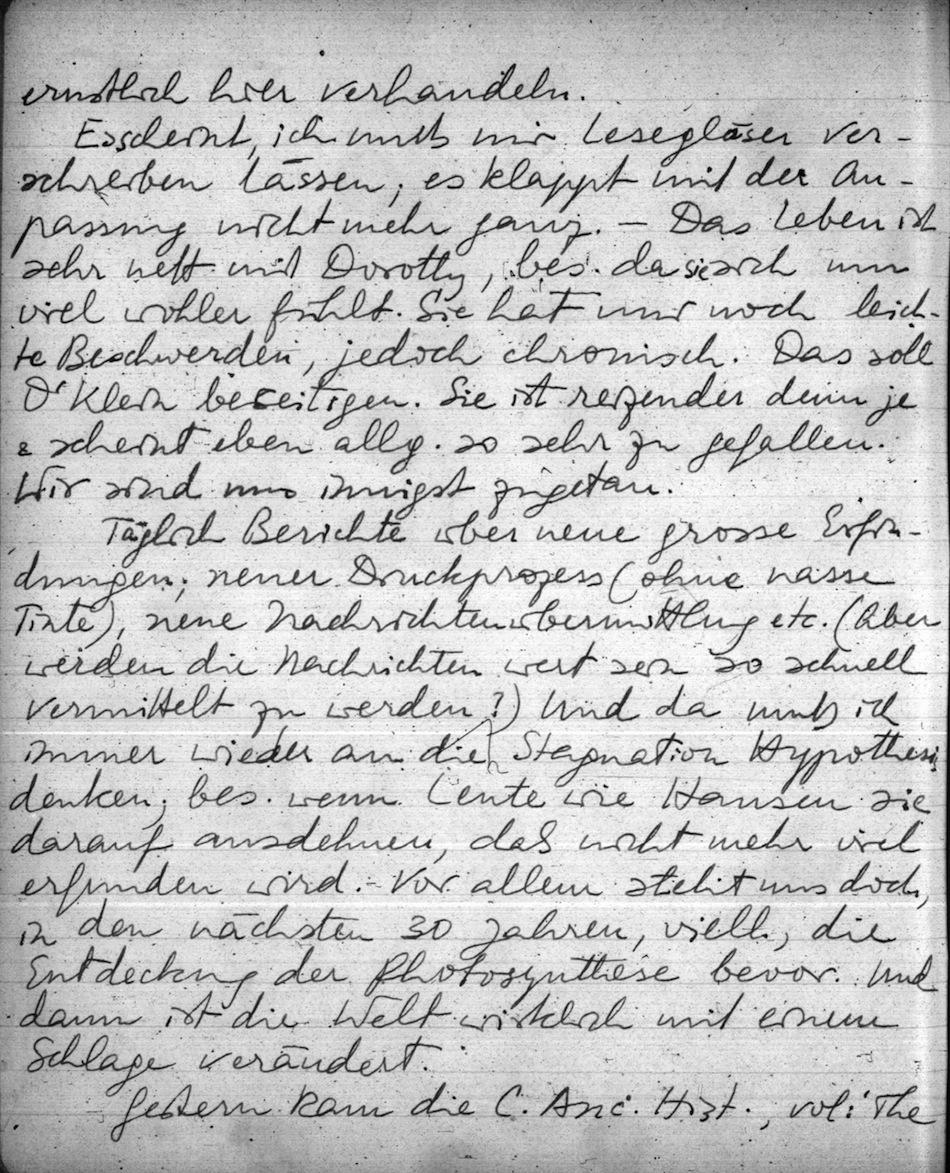 ernstlich hier verhandeln.
Es scheint, ich muß mir Lesegläser ver-
schreiben lassen; es klappt mit der An-
passung nicht mehr ganz. – Das Leben ist
sehr nett mit Dorothy, bes. da sie sich nun
viel wohler fühlt. Sie hat nur noch leich-
te Beschwerden, jedoch chronisch. Das soll
Dr Klein beseitigen. Sie ist reizender denn je
& scheint eben allg. so sehr zu gefallen.
Wir sind uns innigst zugetan.
Täglich Berichte über neue grosse Erfin-
dungen; neuer Druckprozess (ohne nasse
Tinte), neue Nachrichtenübermittlung etc. (Aber
werden die Nachrichten wert sein so schnell
vermittelt zu werden?) Und da muß ich
immer wieder an die Stagnation Hypothesis
denken; bes. wenn Leute wie Hansen sie
darauf ausdehnen, daß nicht mehr viel
erfunden wird. – Vor allem steht uns doch,
in den nächsten 30 Jahren, viell., die
Entdeckung der Photosynthese bevor. Und
dann ist die Welt wirklich mit einem
Schlage verändert.
Gestern kam die C. Anc. Hist., vol: The